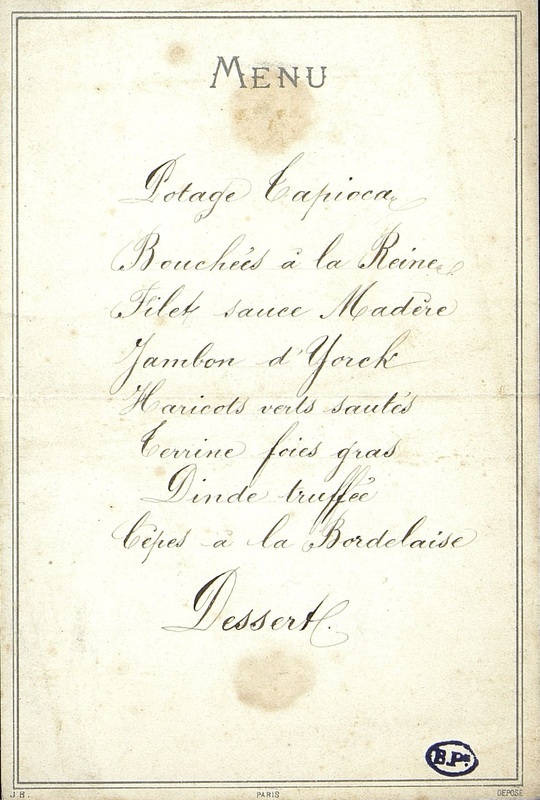 MENU
Potage Tapioca
Bouchées à la Reine
Filet sauce Madère
Jambon d'Yorck
Haricots verts sautés
Terrine foies gras
Dinde truffée
Cèpes à la Bordelaise
Dessert.
B.Ps
J.B. PARIS DEPOSÉ